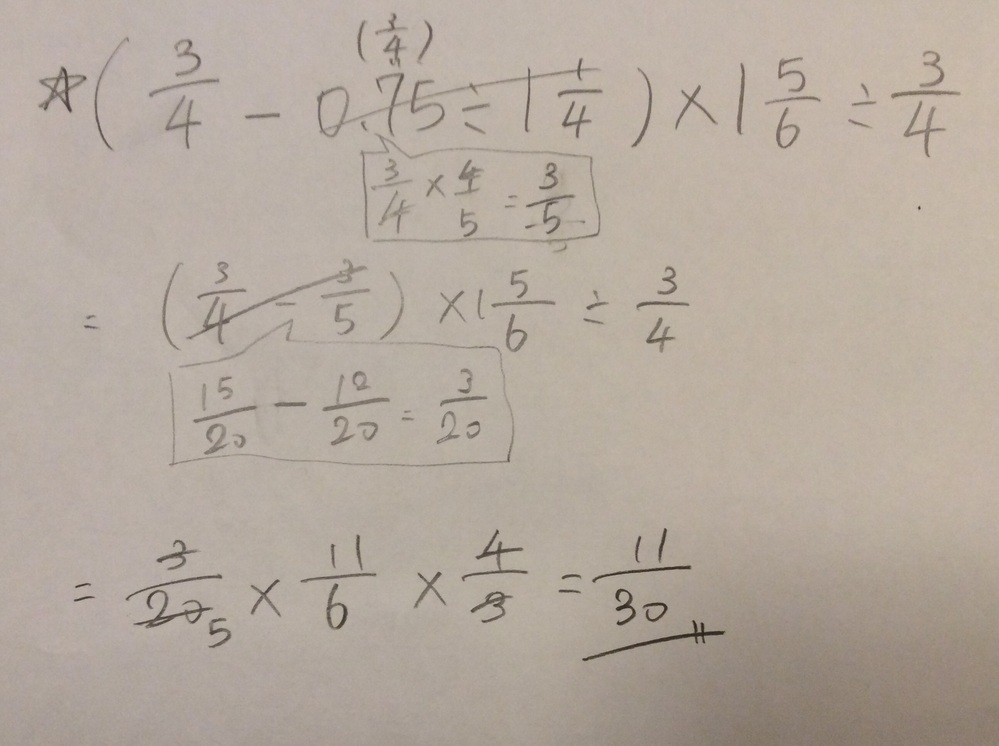 (3/4)
☆(3/4 - 0.75 ÷ 1 1/4) × 1 5/6 ÷ 3/4
3/4 × 4/5 = 3/5
= (3/4 - 3/5) × 1 5/6 ÷ 3/4
15/20 - 12/20 = 3/20
= 3/20 × 11/6 × 4/3 = 11/30
5